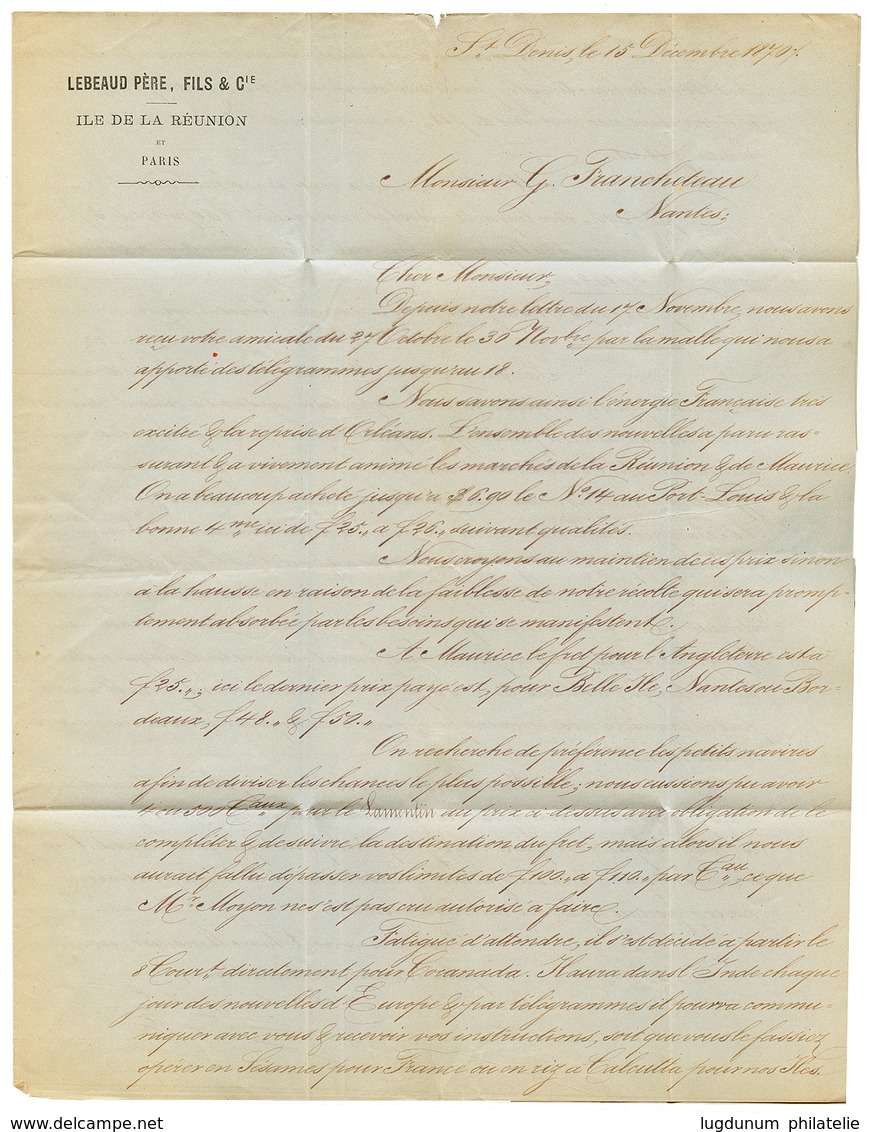 St. Denis, le 15 Décembre 1870.
LEBEAUD PÈRE, FILS & Cie
ILE DE LA RÉUNION
ET
PARIS
Monsieur G. Francheteau
Nantes;
Cher Monsieur,
Depuis notre lettre du 17 Novembre, nous avons
reçu votre amicale du 27 Octobre le 30 Novbre par la malle qui nous a
apporté des télégrammes jusqu'au 18.
Nous savons ainsi l'énergie Française très
excitée & la reprise d'Orléans. L'ensemble des nouvelles a paru ras-
surant & a vivement animé les marchés de la Réunion & de Maurice
On a beaucoup acheté jusqu'à $6.90 le No. 14 au Port-Louis & la
bonne 4me ici de f25.„ a f26.„ suivant qualités.
Nous croyons au maintien de ces prix sinon
à la hausse en raison de la faiblesse de notre récolte qui sera promp-
tement absorbée par les besoins qui se manifestent.
A Maurice le fret pour l'Angleterre est à
f25.„; ici le dernier prix payé est, pour Belle Ile, Nantes ou Bor-
deaux, f48.„ & f50.„
On recherche de préférence les petits navires
afin de diviser les chances le plus possible; nous eussions pu avoir
4 ou 500 Taux pour le Lamentin au prix ci dessus avec obligation de le
compléter & de suivre la destination du fret, mais alors il nous
aurait fallu dépasser vos limites de f100.„ a f110.„ par Tau, ce que
Mr. Moyon ne s'est pas cru autorisé à faire.
Fatigué d'attendre, il s'est décidé à partir le
8 Cour.t directement pour Cocanada. Il aura dans l'Inde chaque
jour des nouvelles d'Europe & par télégrammes il pourra commu-
niquer avec vous & recevoir vos instructions, soit que vous le fassiez
opérer en Sésames pour France ou en riz a Calcutta pour nos Iles.
www.delcampe.net
lugdunum philatelie